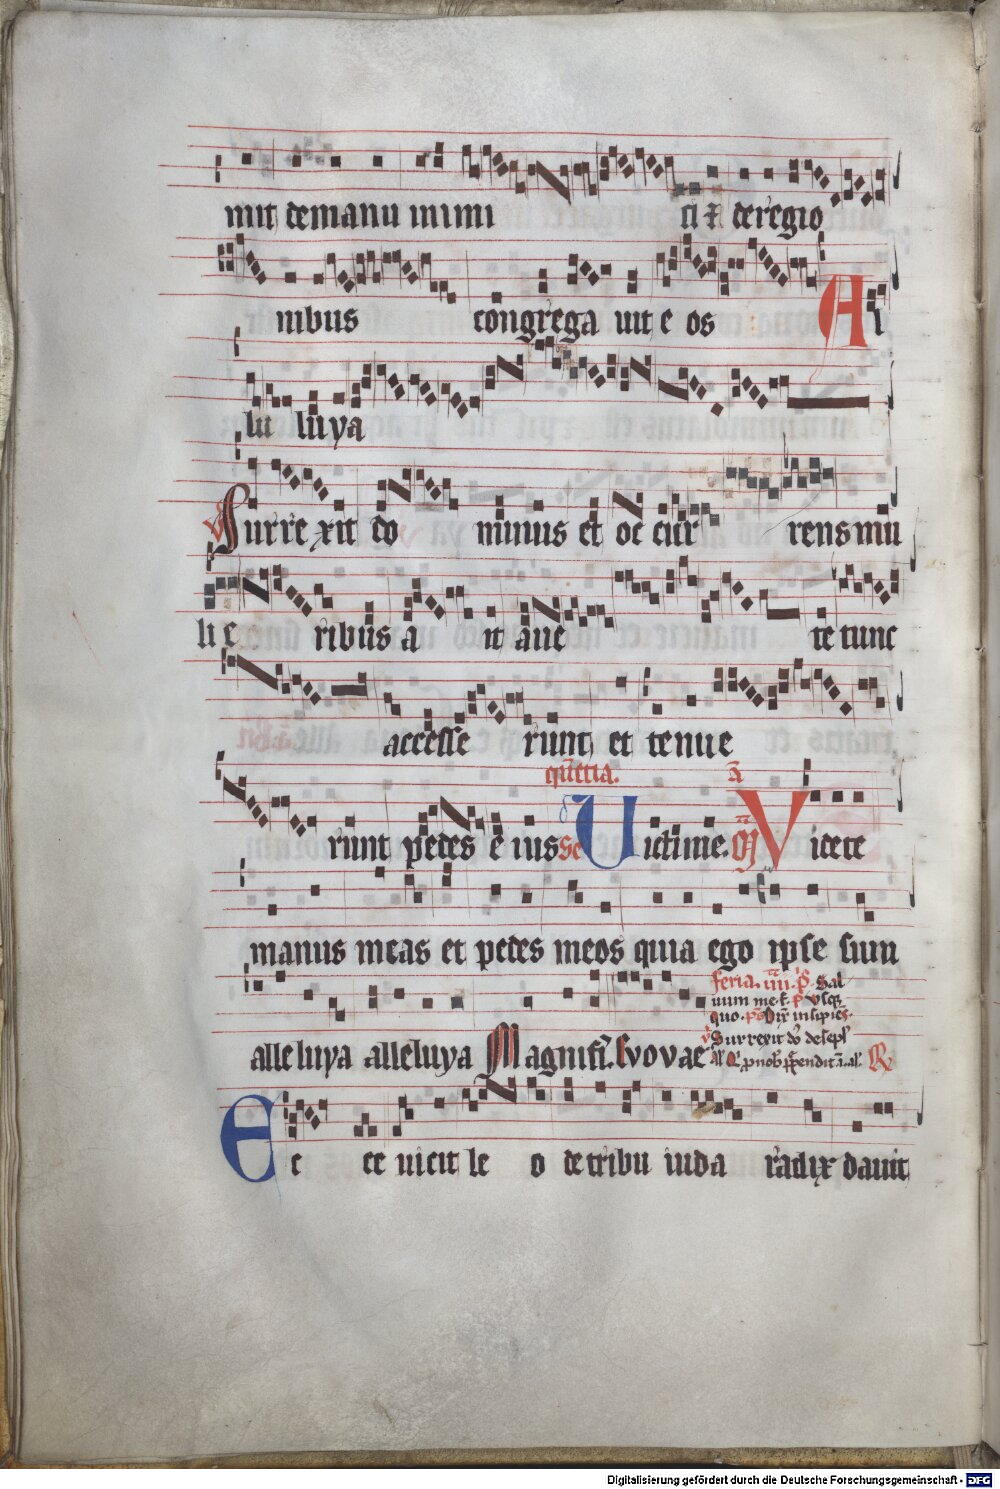 mit de manu inimi ci ⁊ de regio
nibus congrega uit e os Al
lu luya
V Surre xit do minus et oc cur rens mu
li e ribus a it aue te tunc
accesse runt et tenue
runt pedes e ius Se Uictime. Videte
manus meas et pedes meos quia ego ipse sum
alleluya alleluya Magnifi. Evovae
feria. iiii.
Ec ce uicit le o de tribu iuda radix dauit
Digitalisierung gefördert durch die Deutsche Forschungsgemeinschaft - DFG